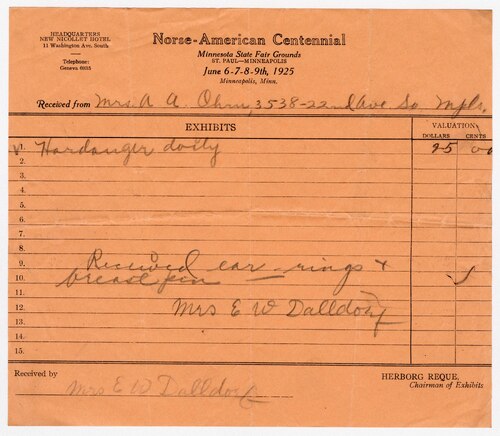 HEADQUARTERS
NEW NICOLLET HOTEL
11 Washington Ave. South
Telephone:
Geneva 6835
Norse-American Centennial
Minnesota State Fair Grounds
ST. PAUL—MINNEAPOLIS
June 6-7-8-9th, 1925
Minneapolis, Minn.
Received from Mrs. A. A. Ohrn, 3538-22nd Ave So. Mpls.
EXHIBITS
VALUATION
DOLLARS CENTS
√1. Hardanger doily 25 00
2.
3.
4.
5.
6.
7.
8.
9. Received ear-rings +
10. breast pin
11.
12. Mrs E W Dalldorf
13.
14.
15.
Received by Mrs E W Dalldorf
HERBORG REQUE,
Chairman of Exhibits